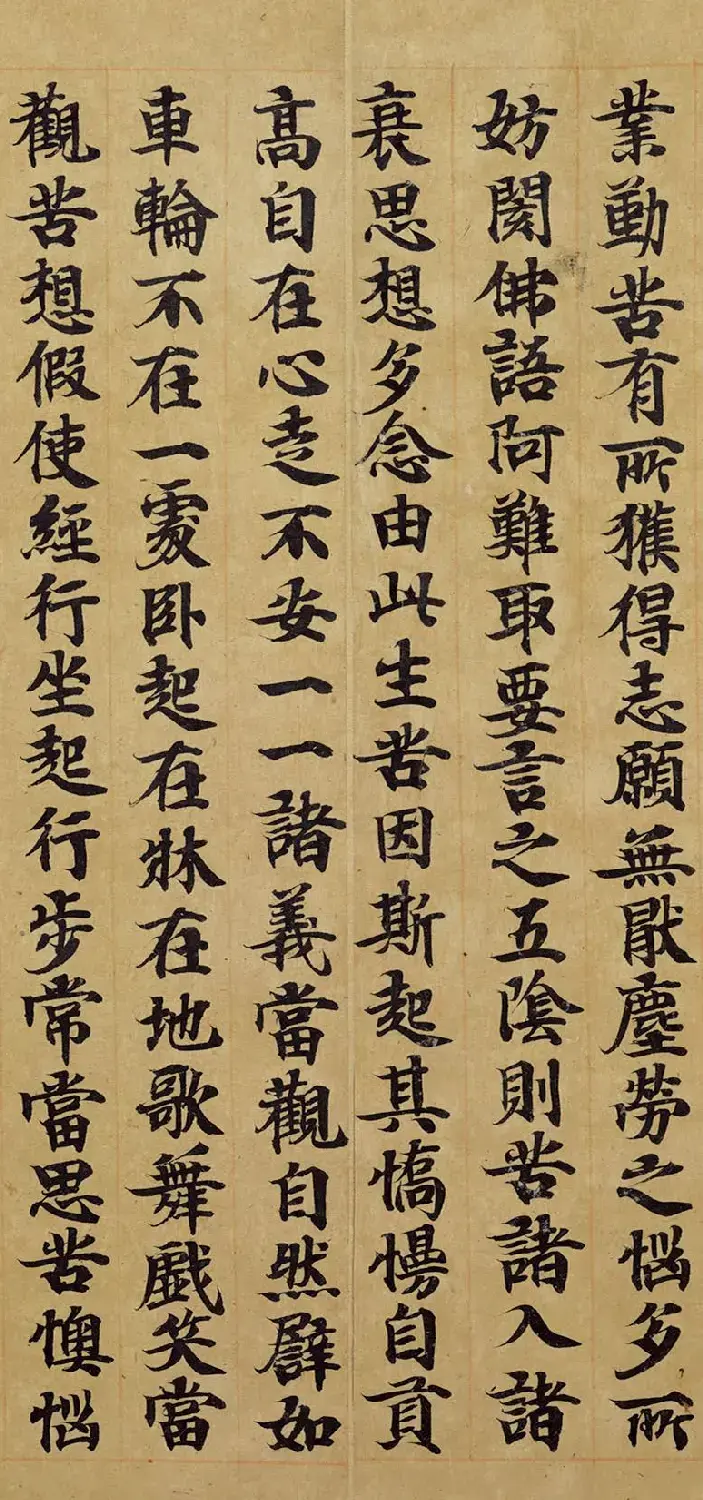 業勤苦有所獲得志願無猒塵勞之惱多所
妨閡佛語阿難取要言之五陰則苦諸入諸
衰思想多念由此生苦因斯起其憍慢自貢
高自在心走不安一一諸義當觀自然譬如
車輪不在一處臥起在牀在地歌舞戲笑當
觀苦想假使經行坐起行步常當思苦懊惱